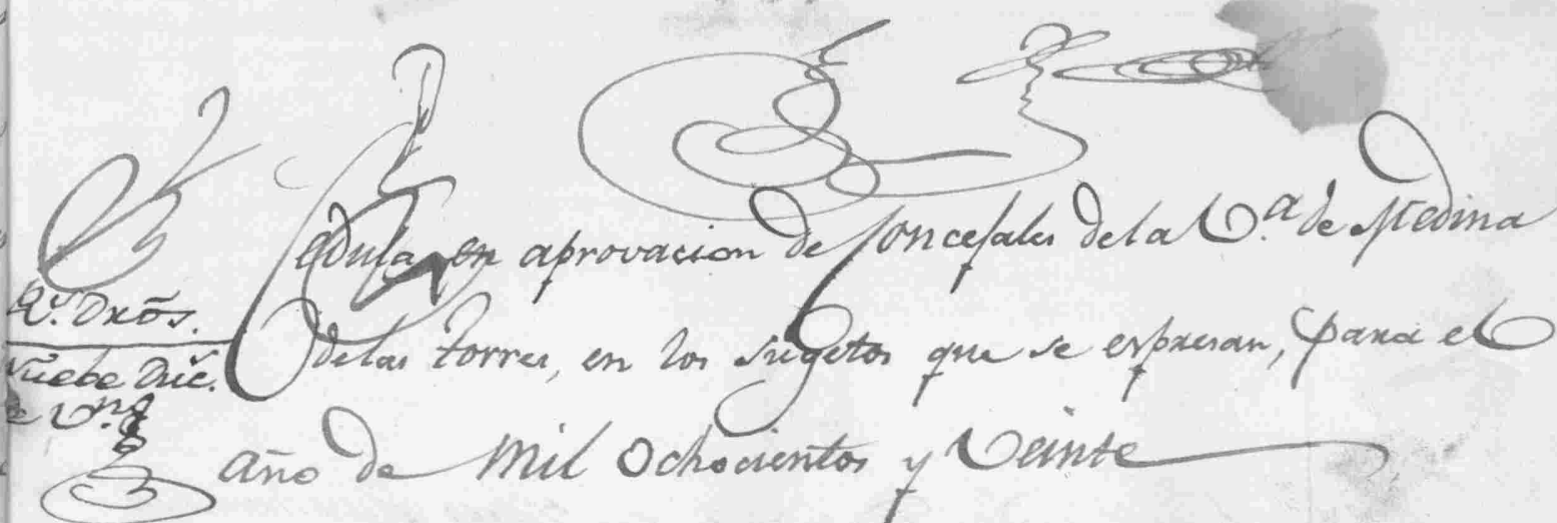 Cedula, en aprovacion de Concejales de la V.ª de Medina
de las torres, en los sugetos que se expresan, para el
año de mil ochocientos y Veinte
R.s Drõs.